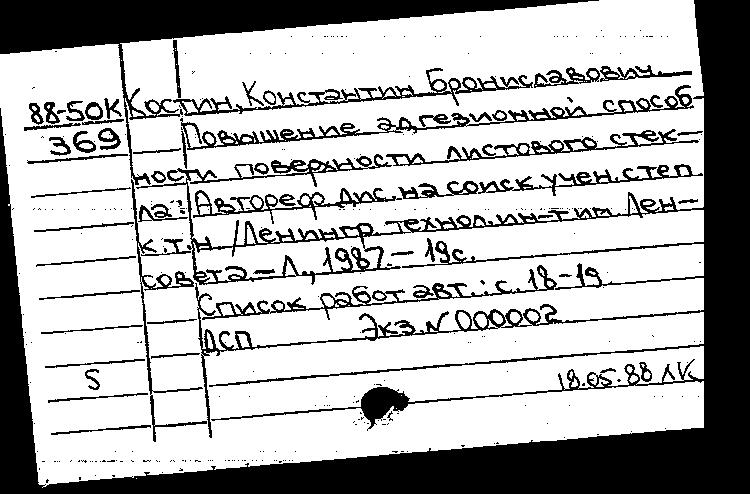 88-50К Костин, Константин Брониславович.
369 Повышение адгезионной способ-
ности поверхности листового стек-
ла: Автореф. дис. на соиск. учен. степ.
к.т.н. /Ленингр. технол. ин-т им. Лен-
совета. – Л., 1987. – 19с.
Список работ авт.: с. 18-19.
ДСП. Экз. N 000002
S
18.05.88 ЛК